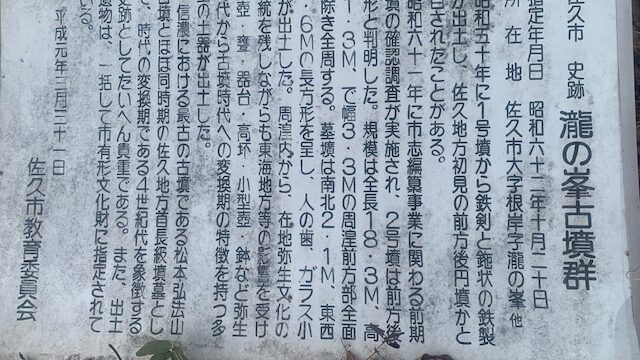 佐久市 史跡 瀧の峯古墳群
指定年月日 昭和六十二年十月二十日
所在地 佐久市大字根岸字瀧の峯 他
昭和五十年に1号墳から鉄剣と鉇状の鉄製
が出土し、佐久地方初見の前方後円墳かと
目されたことがある。
昭和六十一年に市志編纂事業に関わる前期
墳の確認調査が実施され、2号墳は前方後
形と判明した。規模は全長18・3M、高
1・3M、で幅3・3Mの周湟前方部全面
除き全周する。墓壙は南北2・1M、東西
・6Mの長方形を呈し、人の歯、ガラス小
が出土した。周湟内から、在地弥生文化の
統を残しながらも東海地方等の影響を受け
壺 甕・器台・高坏・小型壺 鉢など弥生
代から古墳時代への変換期の特徴を持つ多
の土器が出土した。
信濃における最古の古墳である松本弘法山
古墳とほぼ同時期の佐久地方首長級墳墓とし
て、時代の変換期である4世紀代を象徴する
史跡としてたいへん貴重である。また、出土
遺物は、一括して市有形文化財に指定されて
いる。
平成元年三月三十一日
佐久市教育委員会